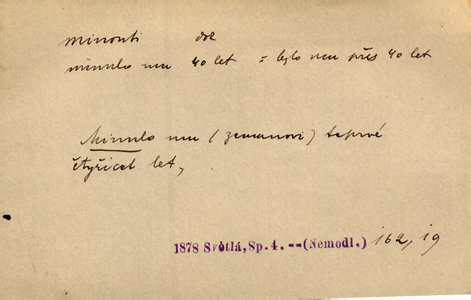 minouti dok
minulo mu 40 let = bylo mu přes 40 let
Minulo mu (zemanovi) teprvé
čtyřicet let,
1878 Světlá, Sp. 4. -- (Nemodl.) 162, 19